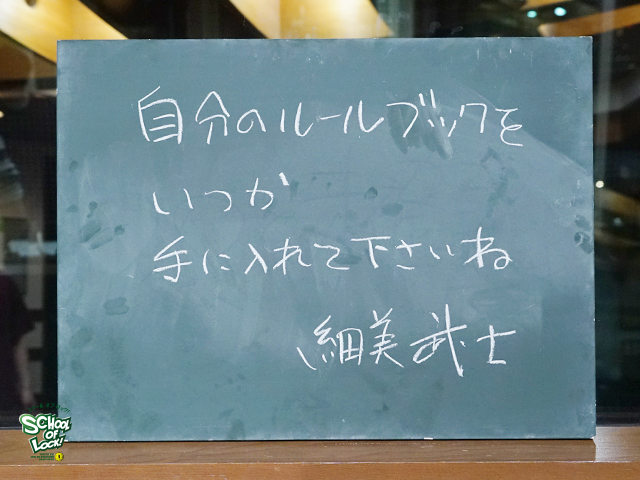 自分のルールブックを
いつか
手に入れて下さいね
細美武士
SCHOOL
OF
LOCK!